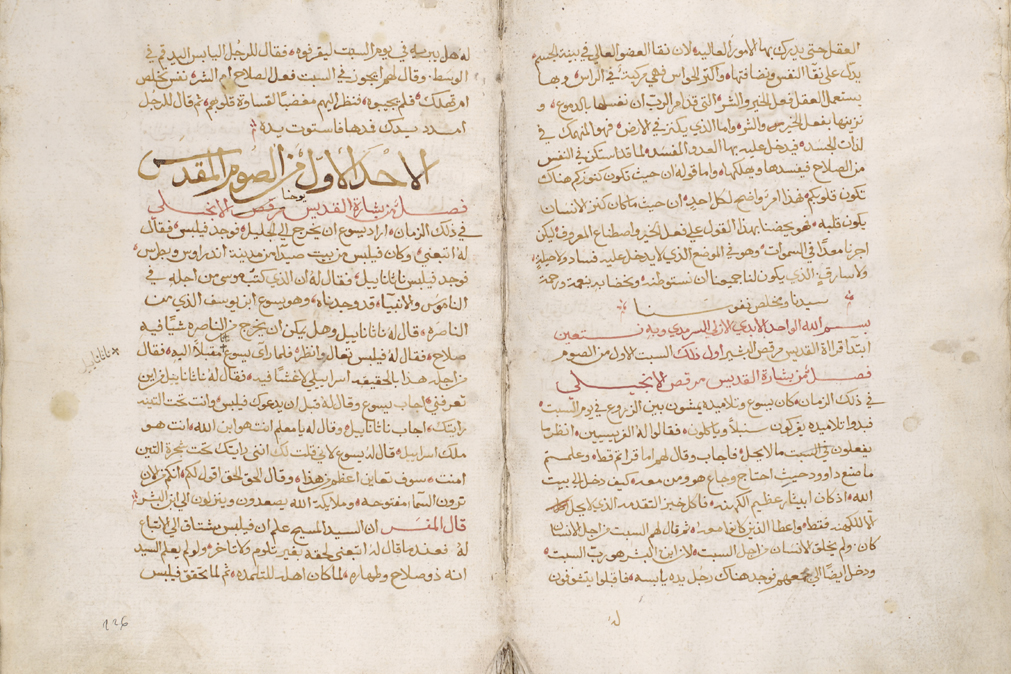 العقل حتى يدرك بها الامور العالية لان نقا العضو العالي في بنية الجسم
يدل على نقا النفس ونضافتها واكثر الحواس فهي مركبة في الراس وبها
يستعمل العقل فعل الخير والشر التي قد امر الرب ان نغسلها بالدموع و
نزينها بفعل الخير واما الذي يكنز في الارض فهو المنهمك في
لذات الجسد فيدخل عليه بها العدو المفسد لما قد اسكن في النفس
من الصلاح فيفسدها ويهلكها واما قوله ان حيث تكون كنوزكم هناك
تكون قلوبكم فهذا امر واضح لكل احد ان حيث ما كان كنز الانسان
يكون قلبه فهو يحضنا بهذا القول على فعل الخير واصطناع المعروف ليكن
اجرنا معدا في السموات وهو في الموضع الذي لا يدخل عليه فساد ولا حيلة
ولا سارق الذي يكون لنا جميعنا ان نستوطنه ونحضا به بنعمة ورحمة
سيدنا ومخلص نفوسنا
بسم الله الواحد الابدي الازلي السرمدي وبه نستعين
ابتدا قراة القديس مرقص البشير اول ذلك السبت الاول من الصوم
فصل من بشارة القديس مرقص الانجيلي
في ذلك الزمان كان يسوع وتلاميذه يمشون بين الزروع في يوم السبت
فبدوا تلاميذه يفركون سنبلا وياكلون فقالوا له الفريسيين انظر ما
يفعلون في السبت ما لا يحل فاجاب وقال لهم اما قراتم قط وعلمتم
ما صنع داوود حيث احتاج وجاع هو ومن معه كيف دخل الى بيت
الله اذ كان ابيثار عظيم الكهنة فاكل خبز التقدمة الذي لا يحل
الا للكهنة فقط واعطا الذين كانوا معه ثم قال لهم السبت من اجل الانسان
كان ولم يخلق الانسان من اجل السبت لان ابن البشر هو رب السبت
ودخل ايضا الى مجمعهم فوجد هناك رجل يده يابسة فاقبلوا يتشوفون
له هل يبريه في يوم السبت ليقرفوه فقال للرجل اليابس اليد قم في
الوسط وقال لهم ايجوز في السبت فعل الصلاح ام الشر نفس تخلص
ام تهلك فلم يجيبوه فنظر اليهم مغضبا لقساوة قلوبهم ثم قال للرجل
امدد يدك فمدها فاستوت يده
الاحد الاول من الصوم المقدس
يوحنا
فصل من بشارة القديس مرقص الانجيلي
في ذلك الزمان اراد يسوع ان يخرج الى الجليل فوجد فيلبس فقال
له اتبعني وكان فيلبس من بيت صيدا من مدينة اندراوس وبطرس
فوجد فيلبس ناثانابيل فقال له ان الذي كتب موسى من اجله في
الناموس والانبيا قد وجدناه وهو يسوع ابن يوسف الذي من
الناصره قال له ناثانابيل وهل يمكن ان يخرج من الناصره شيا فيه
صلاح فقال له فيلبس تعال وانظر فلما راى يسوع مقبلا اليه فقال
ناثانابيل
من اجله هذا بالحقيقه اسراييلي لا غش فيه فقال له ناثانابيل من اين
تعرفني اجاب يسوع وقال له قبل ان يدعوك فيلبس وانت تحت التينه
رايتك اجاب ناثانابيل وقال له يا معلم انت هو ابن الله انت هو
ملك اسراييل قال له يسوع لاني قلت لك انني رايتك تحت شجرة التين
امنت سوف تعاين اعظم من هذا وقال الحق الحق اقول لكم انكم من الان
ترون السما مفتوحه وملايكة الله يصعدون وينزلون الى ابن البشر
قال المفسر ان السيد المسيح علم ان فيلبس يشتاق الى الاتباع
له فعند ما قال له اتبعني لحقه بغير تلوم ولا تاخر ولو لم يعلم السيد
انه ذو صلاح وطهاره لما كان اهله للتلمذه ثم لما تحقق فيلبس
126